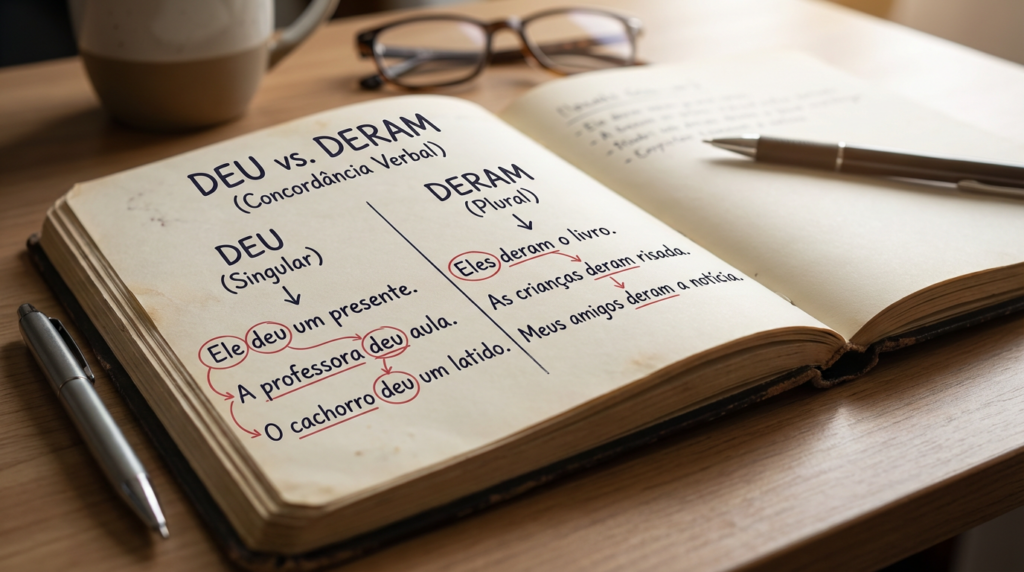 DEU vs. DERAM
(Concordância Verbal)
DEU
(Singular)
Ele deu um presente.
A professora deu aula.
O cachorro deu um latido.
DERAM
(Plural)
Eles deram o livro.
As crianças deram risada.
Meus amigos deram a notícia.